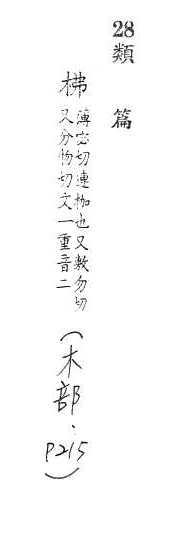 28類篇
柫薄宓切連枷也又敷勿切
又分物切文一重音二
(木部·P215)